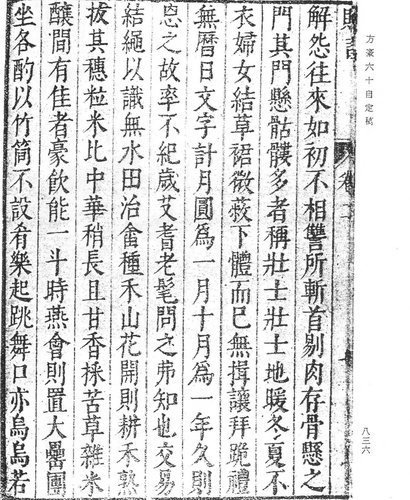 方豪六十自定稿
八三六
解怨往來如初不相讐所斬首剔肉存骨懸之
門其門懸骷髏多者稱壯士壯士地暖冬夏不
衣婦女結草裙微蔽下體而已無揖讓拜跪禮
無曆日文字計月圓為一月十月為一年久則
忘之故率不紀歲艾耆老髦問之弗知也交易
結繩以識無水田治畬種禾山花開則耕禾熟
拔其穗粒米比中華稍長且甘香採苦草雜米
釀間有佳者豪飲能一斗時燕會則置大罍團
坐各酌以竹筒不設肴樂起跳舞口亦烏烏若